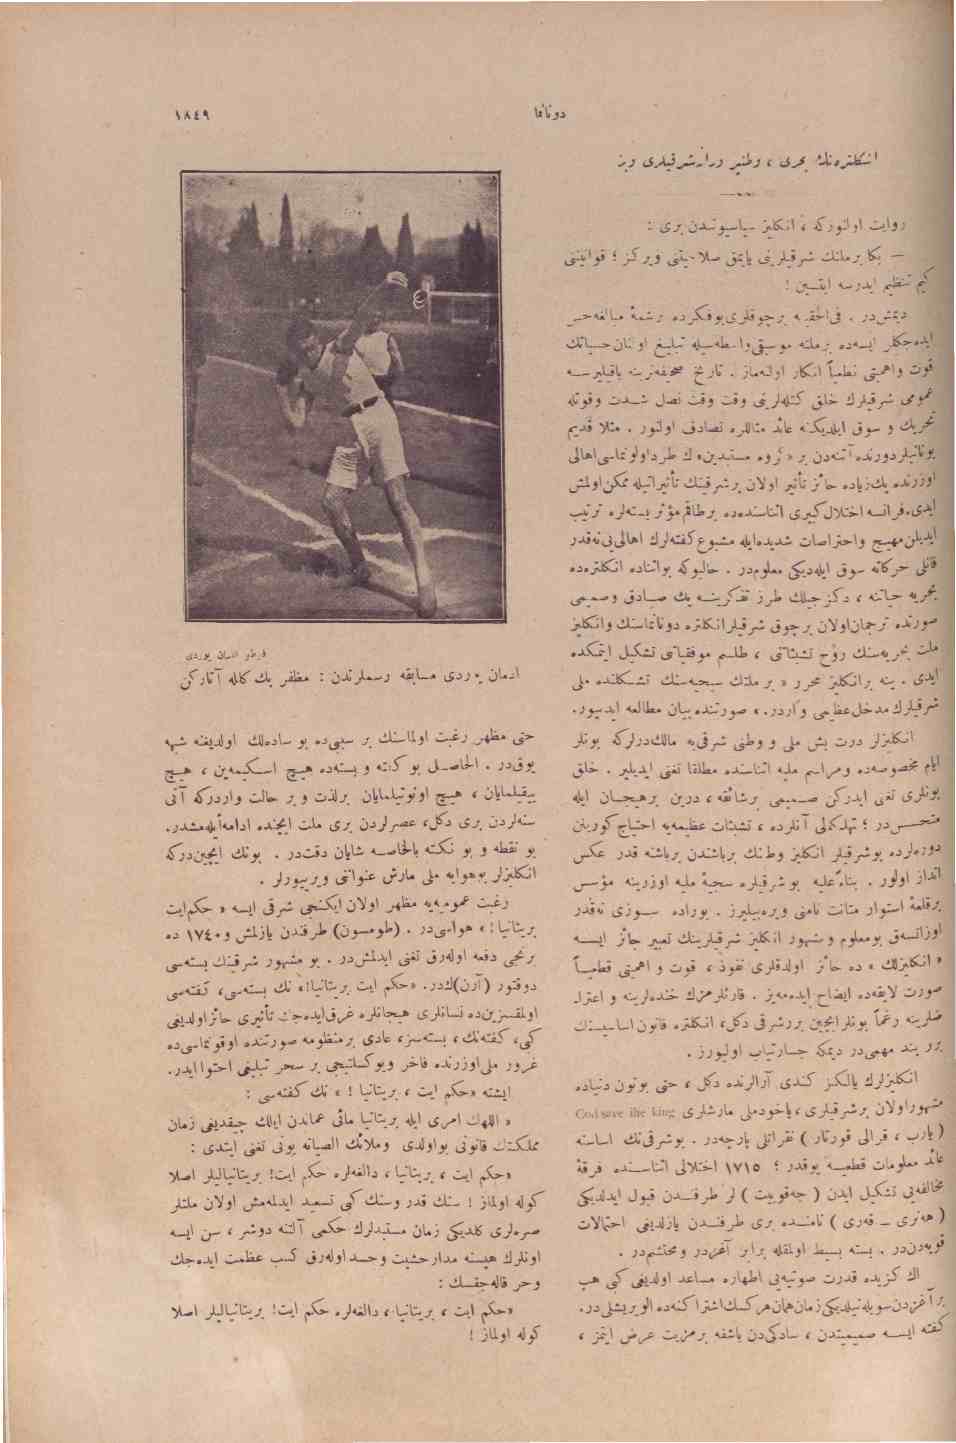 دونانما
١٨٤٩
انكلتره‌نك بحری ، وطنپرورانه شرقیلری و بز
روایت اولنوركه ، انكلیز سیاسیوندن بری :
— بكا بر ملتك شرقیلرینی یاپمق صلاحیتنی ویركز ؛ قوانیننی
كیم تنظیم ایدرسه ایتسین !
دیمش‌در . فی‌الحقیقه بر چوقلری بو فكرده بر شمهٔ مبالغه حس
ایده‌جكلر ایسه‌ده بر ملته موسیقی واسطه‌سیله تبلیغ اولنان حسیاتك
قوت و اهمیتی قطعیاً انكار اولنه‌ماز . تاریخ صحیفه‌لرینه باقیلیرسه
عمومی شرقیلرك خلق كتله‌لرینی وقت وقت نصل شدت و قوتله
تحریك و سوق ایلدیكنه عائد مثاللره تصادف اولنور . مثلا قدیم
یونانیلر دورنده آتنه‌دن بر « گروه مستبدین» ك طرد اولونماسی اهالی
اوزرنده پك زیاده حائز تأثیر اولان بر شرقینك تأثیراتیله ممكن اولمش
ایدی. فرانسه اختلال كبیری اثناسنده‌ده بر طاقم مؤثر بسته‌لره ترتیب
ایدیلن مهیج و احتراصات شدیده ایله مشبوع كفته‌لرك اهالی‌یی نه‌قدر
قانلی حركاته سوق ایله‌دیكی معلوم‌در . حالبوكه بو اثناده انكلتره‌ده
بحریه حیاتنه ، دكزجیلك طرز تفكرینه پك صادق و صمیمی
صورتده ترجمان اولان بر چوق شرقیلر انكلتره دونانماسنك و انكلیز
ملت بحریه‌سنك روح تشبثاتنی ، طلسم موفقیاتنی تشكیل ایتمكده
ایدی . ینه بر انكلیز محرر « بر ملتك سجیه‌سنك تشكلنده ملی
شرقیلرك مدخل عظیمی واردر. » صورتنده بیان مطالعه ایدییور.
انكلیزلر درت بش ملی و وطنی شرقی‌یه مالك‌درلركه بونلر
ایام مخصوصه‌ده و مراسم ملیه اثناسنده مطلقا تغنی ایدیلیر . خلق
بونلری تغنی ایدركن صمیمی بر شائقه ، درین بر هیجان ایله
متحسس‌در ؛ تهلكه‌لی آنلرده ، تشبثات عظیمه‌یه احتیاج كورینن
دوره‌لرده بو شرقیلر انكلیز وطنك بر باشندن بر باشنه قدر عكس
انداز اولور . بناءً علیه بو شرقیلره سجیهٔ ملیه اوزرینه مؤسس
بر قلعهٔ استوار متانت نامنی ویره‌بیلیرز . بوراده سوزی نه‌قدر
اوزاتسه‌ق بو معلوم و مشهور انكلیز شرقیلرینك تعبیر جائز ایسه
« انكلیزلك » ده حائز اولدقلری نفوذ ، قوت و اهمیتی قطعیاً
صورت لایقه‌ده ایضاح ایده‌مه‌یز . قارئلرمزك خنده‌لرینه و اعترا-
ضلرینه رغماً بونلر ایچین بر شرقی دكل، انكلتره قانون اساسیسنك
برر بند مهمی‌در دیمكه جسارتیاب اولیورز .
انكلیزلرك یالكز كندی آرالرنده دكل ، حتی بوتون دنیاده
مشهور اولان بر شرقیلری ، یاخود ملی مارشلری God save the king
( یارب ، قرالی قورتار ) نقراتلی پارچه‌در . بو شرقی‌نك اساسنه
عائد معلومات قطعیه یوقدر ؛ ١٧١٥ اختلالی اثناسنده فرقهٔ
مخالفه‌یی تشكیل ایدن ( جه‌قوبیت ) لر طرفندن قبول ایدلدیكی
( هه‌نری — قه‌ری ) نامنده بری طرفندن یازلدیغی احتمالات
قویه‌دن‌در . بسته بسیط اولمقله برابر آغر‌در و محتشم‌در .
اك گزیده قدرت صوتیه‌یی اظهاره مساعد اولدیغی كبی هپ
بر آغزدن سویله‌نیلدیكی زمان همان هركسك اشتراكنه‌ده الویریشلی‌در.
كفته ایسه صمیمیتدن ، سادكی‌دن باشقه بر مزیت عرض ایتمز ،
ادمان یوردی مسابقه رسملرندن : مظفر بك كلله آتاركن
حتی مظهر رغبت اولماسنك بر سببی‌ده بو ساده‌لك اولدیغنه شبهه
یوق‌در . الحاصل بو كفته و بسته‌ده هیچ اسكیمه‌ین ، هیچ
ییقیلمایان ، هیچ اونوتیلمایان بر لذت و بر حالت واردركه آنی
سنه‌لردن بری دكل، عصرلردن بری ملت ایچنده ادامه ایله‌مشدر.
بو نقطه و بو نكته بالخاصه شایان دقت‌در . بونك ایچین‌دركه
انكلیزلر بو هوایه ملی مارش عنواننی ویریورلر .
رغبت عمومیه‌یه مظهر اولان ایكنجی شرقی ایسه « حكم ایت
بریتانیا! » هواسی‌در . (طومسون) طرفندن یازلمش و ١٧٤٠ ده
برنجی دفعه اوله‌رق تغنی ایدلمش‌در . بو مشهور شرقینك بسته‌سی
دوقتور (آرن)ك‌در. «حكم ایت بریتانیا!» نك بسته‌سی، كفته‌سی
اولمقسزین‌ده انسانلری هیجانلره غرق ایده‌جك تأثیری حائز اولدیغی
كبی، كفته‌نك ، بسته‌سز ، عادی بر منظومه صورتنده اوقونماسی‌ده
غرور ملی اوزرنده فاخر و یوكسلتیجی بر سحر تبلیغی احتوا ایدر.
ایشته «حكم ایت ، بریتانیا ! » نك كفته‌سی :
« اللهك امری ایله بریتانیا مائی عماندن ایلك چیقدیغی زمان
مملكتك قانونی بو اولدی و ملائك الصیانه بونی تغنی ایتدی :
«حكم ایت ، بریتانیا ، دالغه‌لره حكم ایت! بریتانیالیلر اصلا
كوله اولماز ! سنك قدر و سنك كبی تسعید ایدلمه‌مش اولان ملتلر
صره‌لری كلدیكی زمان مستبدلرك حكمی آلتنه دوشر ، سن ایسه
اونلرك هپسنه مدار خشیت و حسد اوله‌رق كسب عظمت ایده‌جك
و حر قاله‌جقسك :
«حكم ایت ، بریتانیا ، دالغه‌لره حكم ایت! بریتانیالیلر اصلا
كوله اولماز !